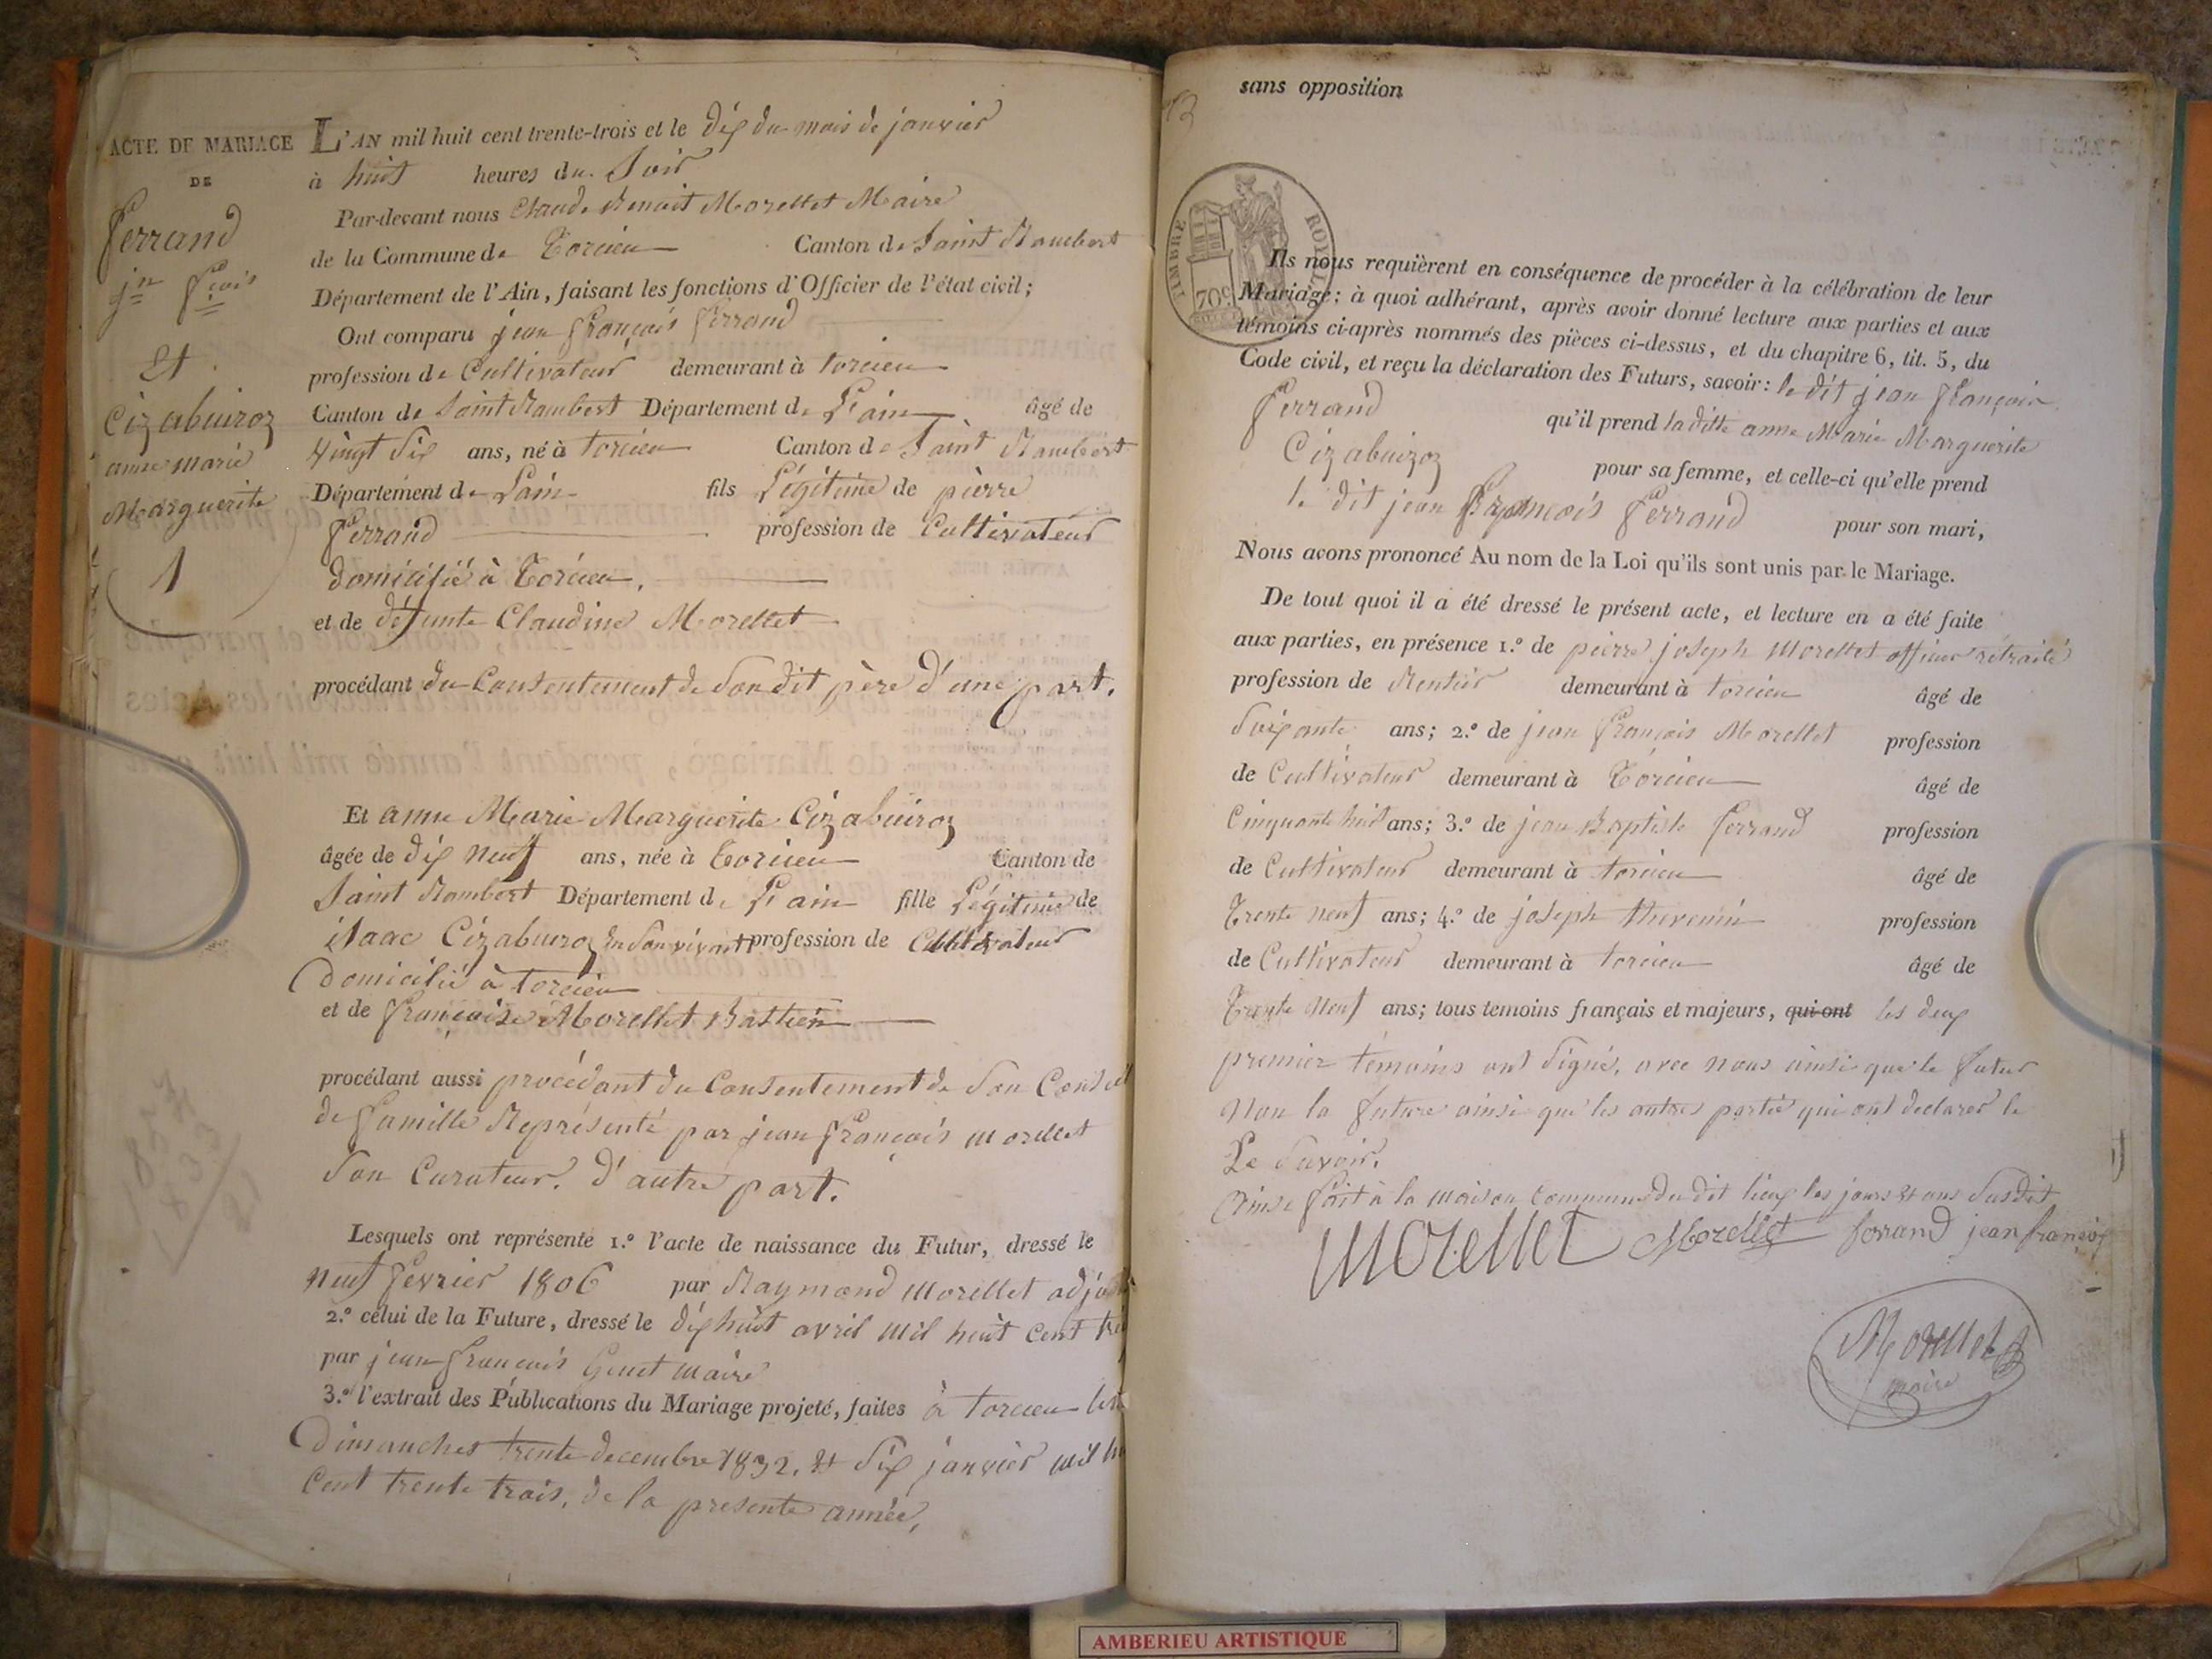 ACTE DE MARIAGE
DE
ferrand
jn fçois
Et
Cizabuiroz
anne marie
Marguerite
1
L'AN mil huit cent trente-trois et le dix du mois de janvier
à huit heures du Soir
Par-devant nous Claude Benoit Morellet Maire
de la Commune de Torcieu Canton de Saint Rambert
Département de l'Ain, faisant les fonctions d'Officier de l'état civil;
Ont comparu jean françois ferrand
profession de Cultivateur demeurant à torcieu
Canton de Saint Rambert Département de L'ain âgé de
Vingt Six ans, né à torcieu Canton de Saint Rambert
Département de Lain fils Légitime de pierre
ferrand profession de Cultivateur
domicilié à Torcieu,
et de défunte Claudine Morellet
procédant du Consentement de Son dit père d'une part.
Et anne Marie Marguerite Cizabuiroz
âgée de dix neuf ans, née à Torcieu Canton de
Saint Rambert Département de L'ain fille Légitime de
isaac Cizabuiroz en Son vivant profession de Cultivateur
Domicilié à torcieu
et de françoise Morellet Bastien
procédant aussi procédant du Consentement de Son Conseil
de famille Représenté par jean françois morellet
Son Curateur. d'autre part.
Lesquels ont représenté 1.º l'acte de naissance du Futur, dressé le
neuf fevrier 1806 par Raymond morellet
2.º celui de la Future, dressé le dix huit avril mil huit cent
par jean françois Genet maire
3.º l'extrait des Publications du Mariage projeté, faites à torcieu
Dimanches trente decembre 1832, et Six janvier mil
Cent trente trois, de la presente année,
sans opposition
TIMBRE ROYAL
70c
Ils nous requièrent en conséquence de procéder à la célébration de leur
Mariage; à quoi adhérant, après avoir donné lecture aux parties et aux
témoins ci-après nommés des pièces ci-dessus, et du chapitre 6, tit. 5, du
Code civil, et reçu la déclaration des Futurs, savoir: le dit jean françois
ferrand qu'il prend la ditte anne Marie Marguerite
Cizabuizoz pour sa femme, et celle-ci qu'elle prend
le dit jean françois ferrand pour son mari,
Nous avons prononcé Au nom de la Loi qu'ils sont unis par le Mariage.
De tout quoi il a été dressé le présent acte, et lecture en a été faite
aux parties, en présence 1.º de pierre joseph morellet officier retraité
profession de Rentier demeurant à torcieu âgé de
Soixante ans; 2.º de jean françois Morellet profession
de Cultivateur demeurant à Torcieu âgé de
Cinquante huit ans; 3.º de jean Baptiste ferrand profession
de Cultivateur demeurant à torcieu âgé de
Trente neuf ans; 4.º de joseph thevenin profession
de Cultivateur demeurant à torcieu âgé de
Trente neuf ans; tous temoins français et majeurs, qui ont les deux
premier témoins ont Signé, avec nous ainsi que le futur
Non la future ainsi que les autres partie qui ont declarer le
Le Savoir.
Ainsi fait à la maison Commune du dit lieux les jours et ans Susdit,
Morellet Morellet ferrand jean françois
Morellet
maire
AMBERIEU ARTISTIQUE